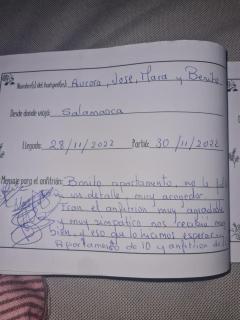 Nombre(s) del huésped(es): Aurora, Jose, Mara y Benito
Desde donde viaja: Salamanca
Llegada: 28/11/2022 Partida: 30/11/2022
Mensaje para el anfitrión: Bonito apartamento, no le
un detalle, muy acogedor
Iran el anfitrión muy agradable
y muy simpatico nos recibio muy
bien y eso que lo hicimos esperar
Apartamento de 10 y anfitrion de